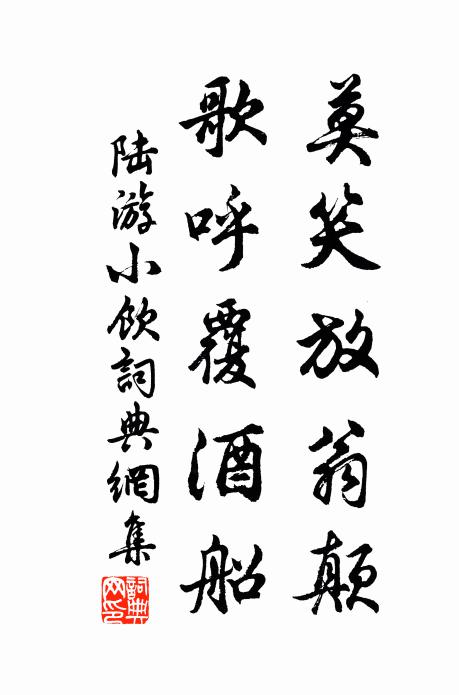 莫笑放翁顛
歌呼覆酒船
陆游小飲詞典網集
詞典网印